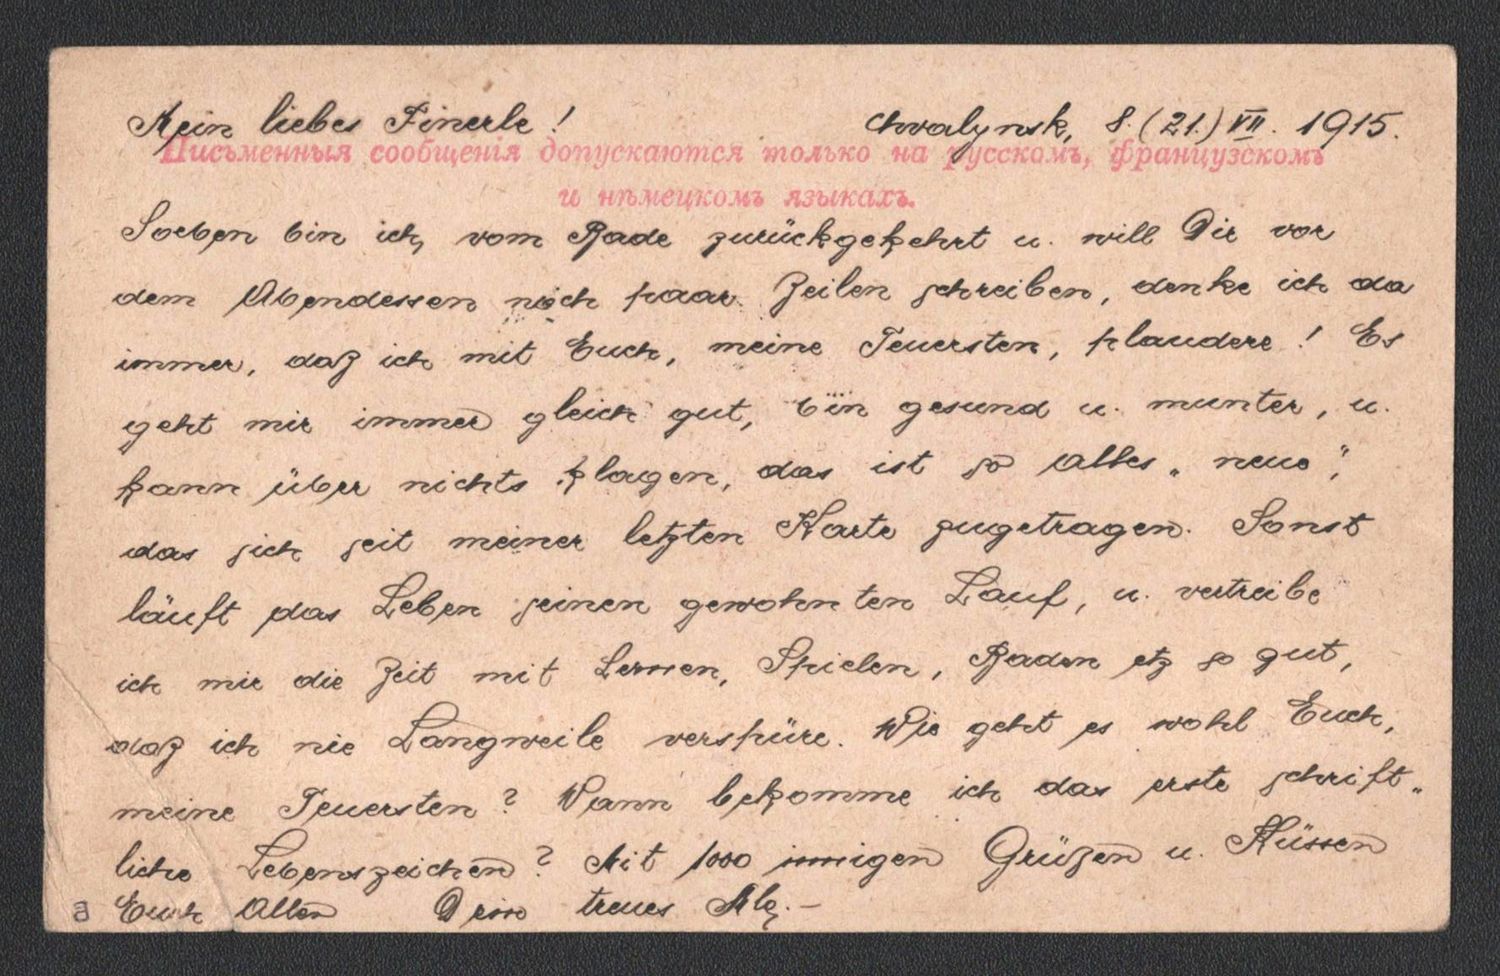 Mein liebes Finerle! Chvalynsk, 8. (21.) VII. 1915.
Письменныя сообщенія допускаются только на русскомъ, французскомъ
и нѣмецкомъ языкахъ.
Soeben bin ich vom Bade zurückgekehrt u. will Dir vor
dem Abendessen noch paar Zeilen schreiben, denke ich da
immer, daß ich mit Euch, meine Teuersten, plaudere! Es
geht mir immer gleich gut, bin gesund u. munter, u.
kann über nichts klagen, das ist so alles „neue“,
das sich seit meiner letzten Karte zugetragen. Sonst
läuft das Leben seinen gewohnten Lauf, u. vertreibe
ich mir die Zeit mit Lernen, Spielen, Baden etz so gut,
daß ich nie Langweile verspüre. Wie geht es wohl Euch,
meine Teuersten? Wann bekomme ich das erste schrift-
liche Lebenszeichen? Mit 1000 innigen Grüßen u. Küssen
Euch Allen Dein treues
a